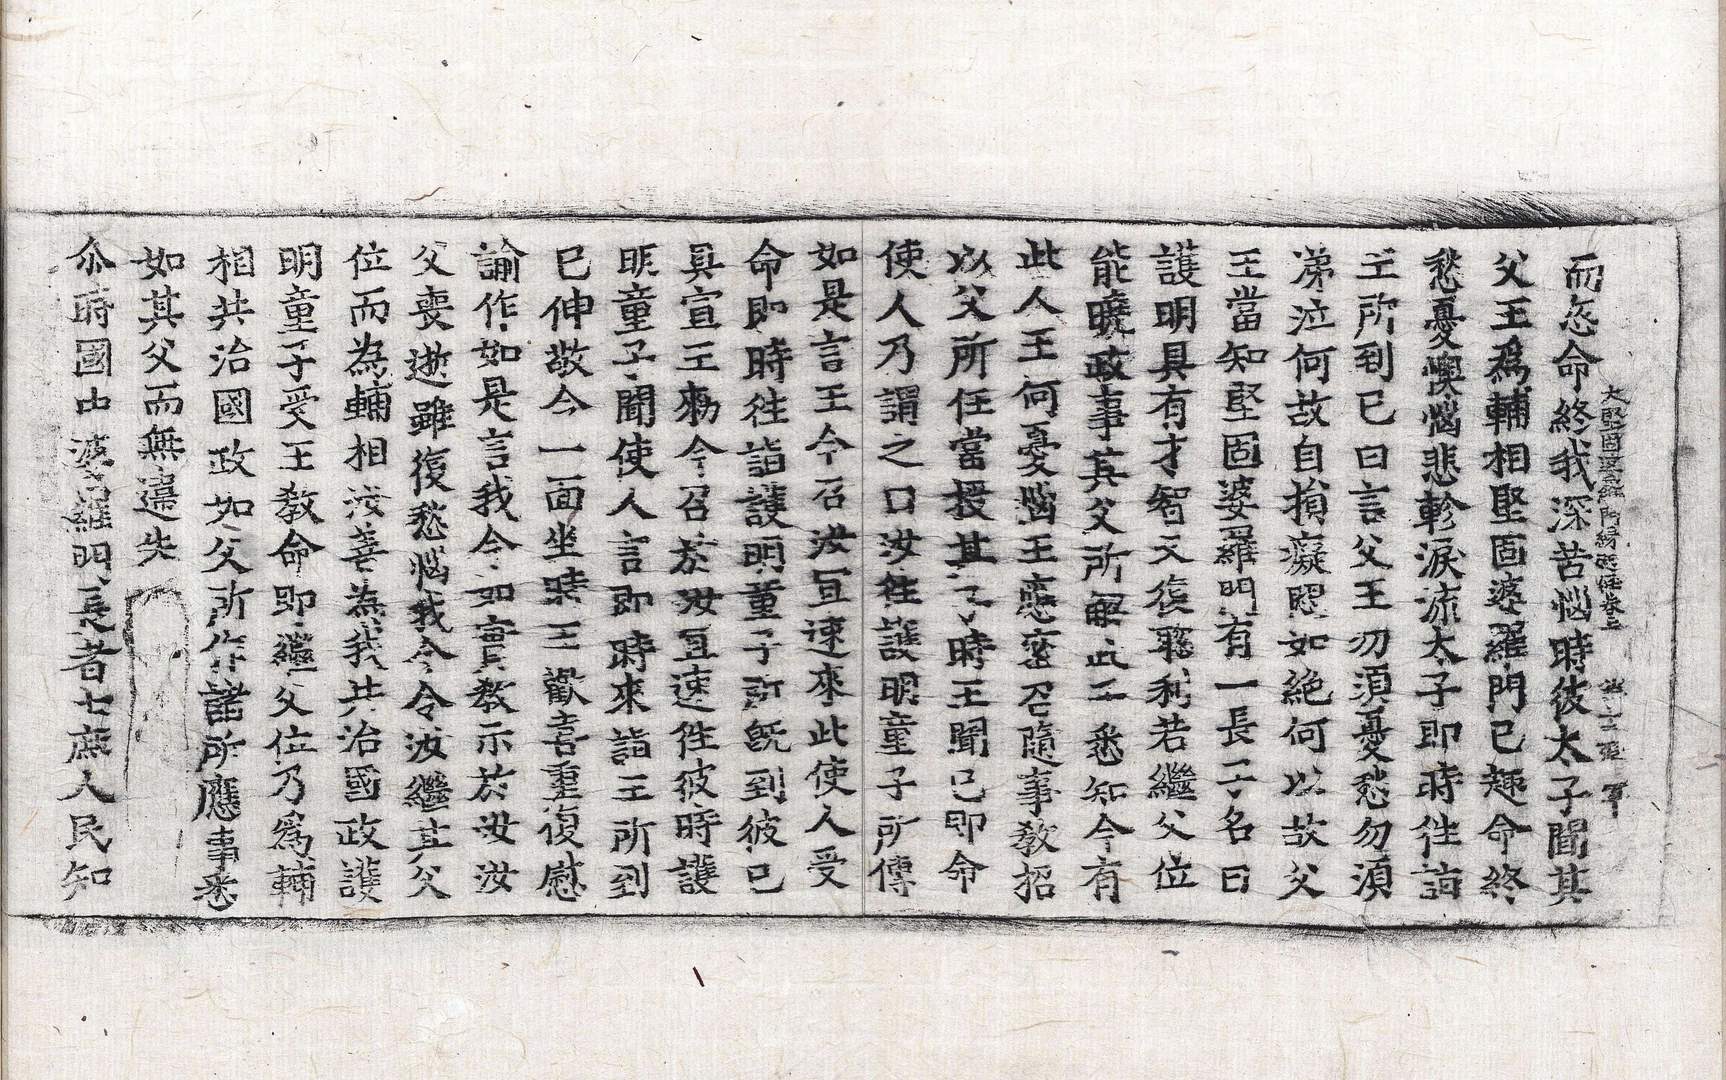 大堅固婆羅門緣起經卷上
而忽命終我深苦惱時彼太子聞其
父王爲輔相堅固婆羅門已趣命終
愁憂懊惱悲軫淚流太子即時徃詣
王所到已曰言父王勿須憂愁勿須
涕泣何故自損癡悶如絶何以故父
王當知堅固婆羅門有一長子名曰
護明具有才智又復聦利若繼父位
能曉政事其父所解此王悉知今有
此人王何憂惱王應宜召隨事教招
以父所任當授其子時王聞已即命
使人乃謂之曰汝徃護明童子所傳
如是言王今召汝宜速來此使人受
命即時徃詣護明童子所旣到彼已
具宣王勑今召於汝宜速徃彼時護
明童子聞使人言即時來詣王所到
已伸敬今一面坐時王歡喜重復慰
諭作如是言我今如實教示於汝汝
父喪逝雖復愁惱我今令汝繼其父
位而為輔相汝善為我共治國政護
明童子受王教命即繼父位乃爲輔
相共治國政如父所作諸所應事悉
如其父而無違失
尒時國中婆羅門長者士庶人民知